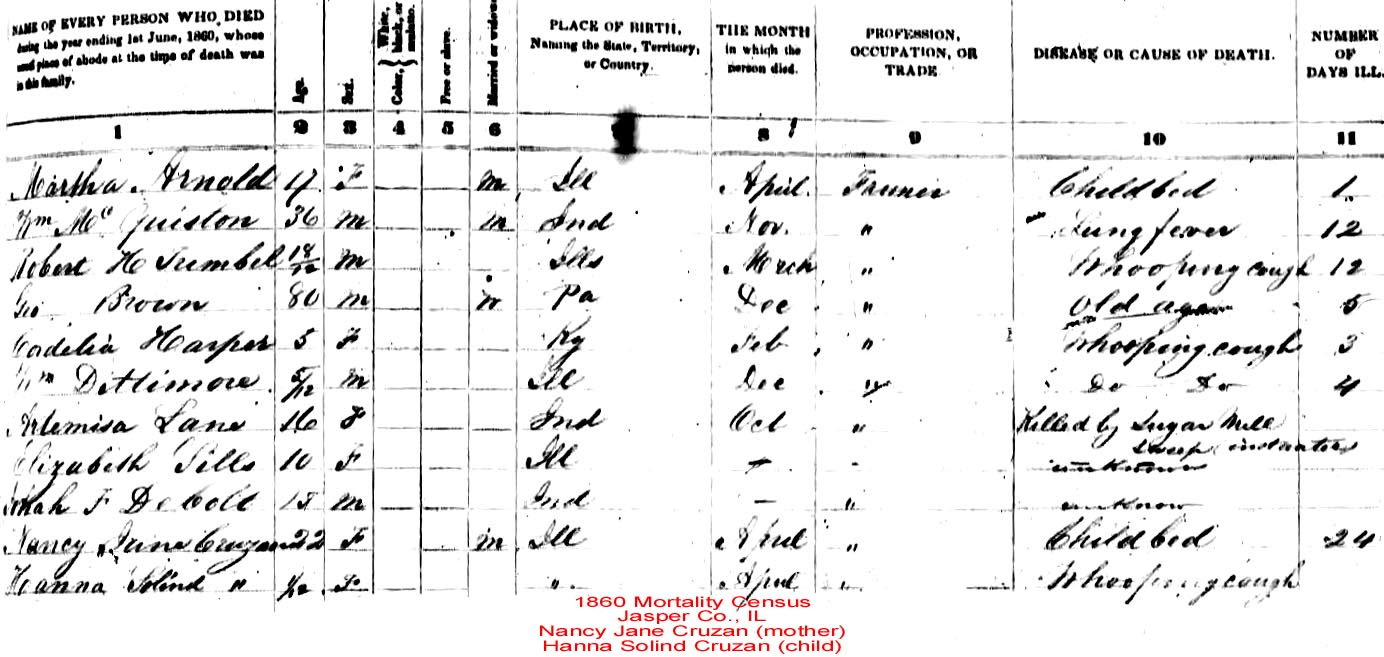 NAME OF EVERY PERSON WHO DIED during the year ending 1st June, 1860, whose usual place of abode at the time of death was in this family. | Age. | Sex. | Color, { White, black, or mulatto. | Free or slave. | Married or widowed | PLACE OF BIRTH, Naming the State, Territory, or Country. | THE MONTH in which the person died. | PROFESSION, OCCUPATION, OR TRADE | DISEASE OR CAUSE OF DEATH. | NUMBER OF DAYS ILL.
1 2 3 4 5 6 8 9 10 11
Martha Arnold 17 F m Ill April. Farmer Childbed 1
Wm Mc Quiston 36 m m Ind Nov. " Lung fever 12
Robert H Sumbel 18/12 m Ills March " Whooping cough 12
Geo Brown 80 m w Pa Dec " Old age 5
Cordelia Harper 5 F Ky Feb " Whooping cough 3
Wm Dittimore 5/12 m Ill Dec " Do Do 4
Artemisa Lane 16 F Ind Oct " Killed by Sugar Mill
Sweep
Elizabeth Sills 10 F Ill - unknown
F m Ind - " unknow
Nancy Jane Cruzan 22 F m Ill April " Childbed 24
Hanna Solind " 1/12 F " April " Whooping cough
1860 Mortality Census
Jasper Co., IL
Nancy Jane Cruzan (mother)
Hanna Solind Cruzan (child)